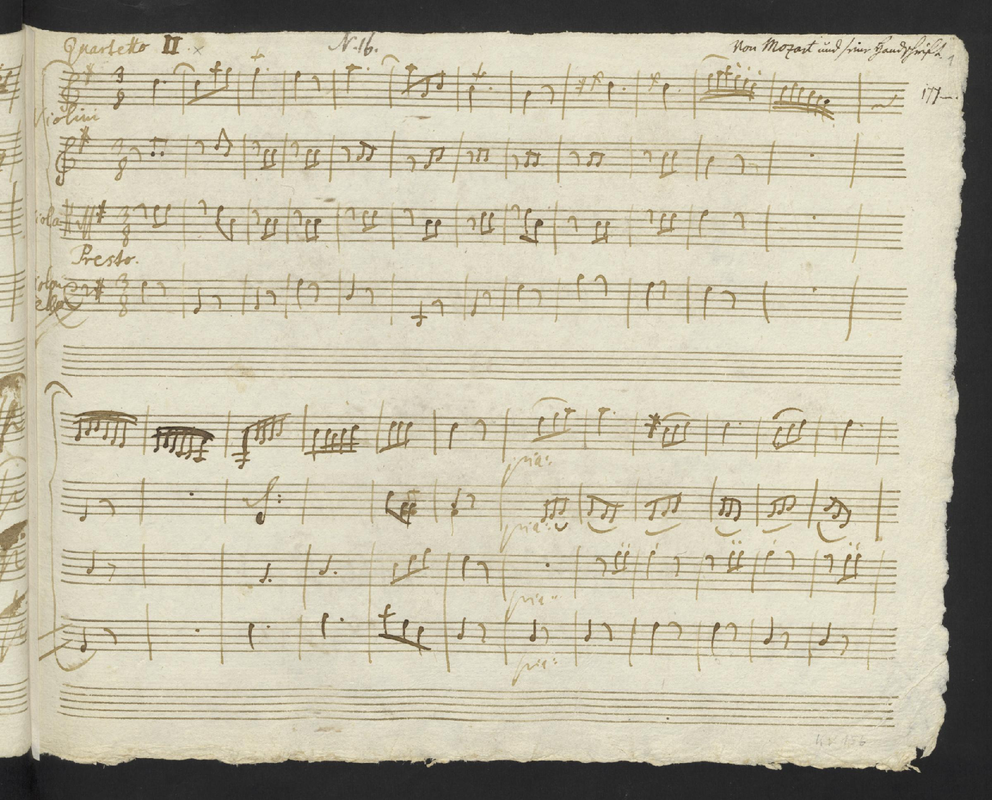 Quartetto II. N. 16. Von Mozart und seiner Handschrift
177
Violini
3 8
3 8
Viola 3 8
Presto.
3 8
pia:
pia:
pia:
pia:
KV 156